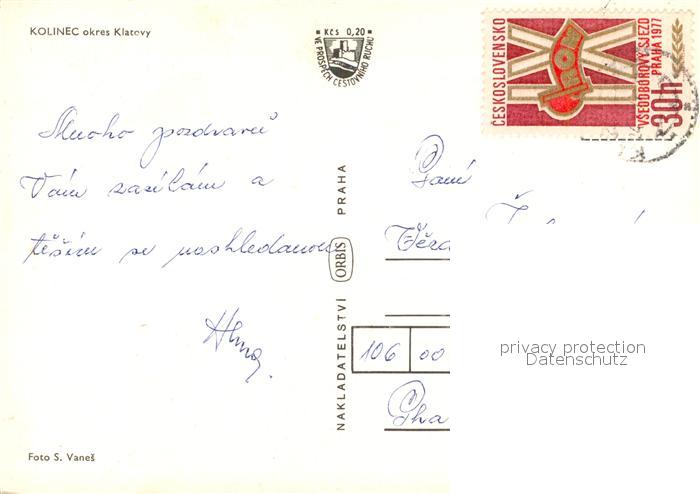 KOLINEC okres Klatovy
Kčs 0,20
VE PROSPĚCH CESTOVNÍHO RUCHU
ČESKOSLOVENSKO
VŠEODBOROVÝ SJEZD
PRAHA 1977
30h
ROH
Mnoho pozdravů
Vám zasílám a
těším se nashledanou
Paní
Věra
106 00
Pha
NAKLADATELSTVÍ ORBIS PRAHA
Foto S. Vaneš
privacy protection
Datenschutz